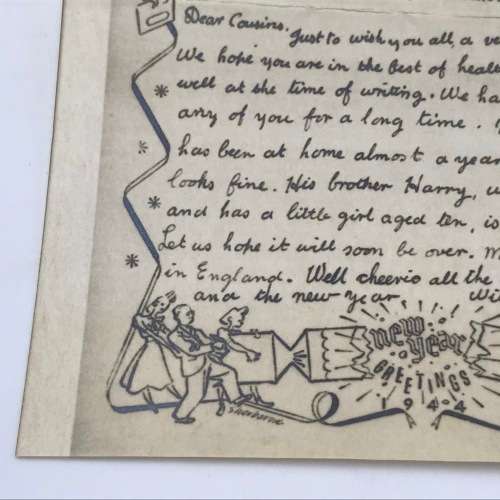 Dear Cousins.
Just to wish you all, a ve
We hope you are in the best of healt
well at the time of writing. We ha
any of you for a long time.
has been at home almost a year
looks fine. His brother Harry, w
and has a little girl aged ten, is
Let us hope it will soon be over. M
in England. Well cheerio all the
and the new year. Wi
new year
GREETINGS
1944